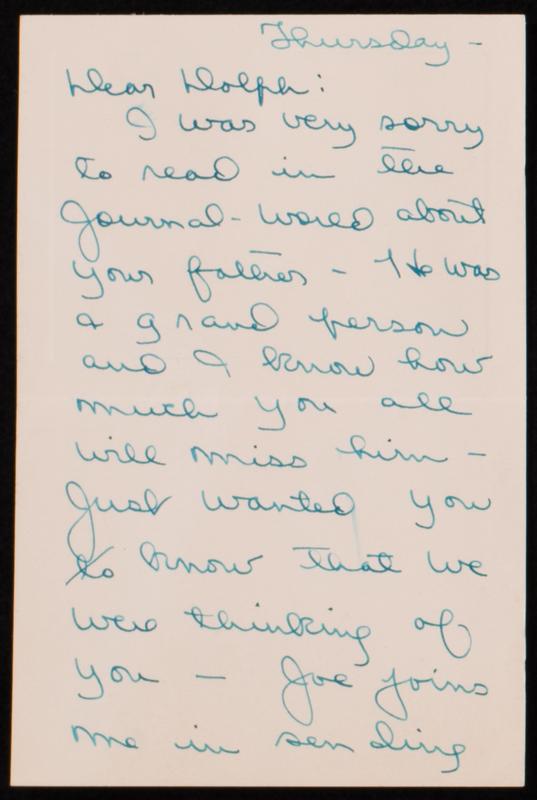 Thursday -
Dear Dolph:
I was very sorry
to read in the
Journal-World about
your father - He was
a grand person
and I know how
much you all
will miss him -
Just wanted you
to know that we
were thinking of
you - Joe joins
me in sending